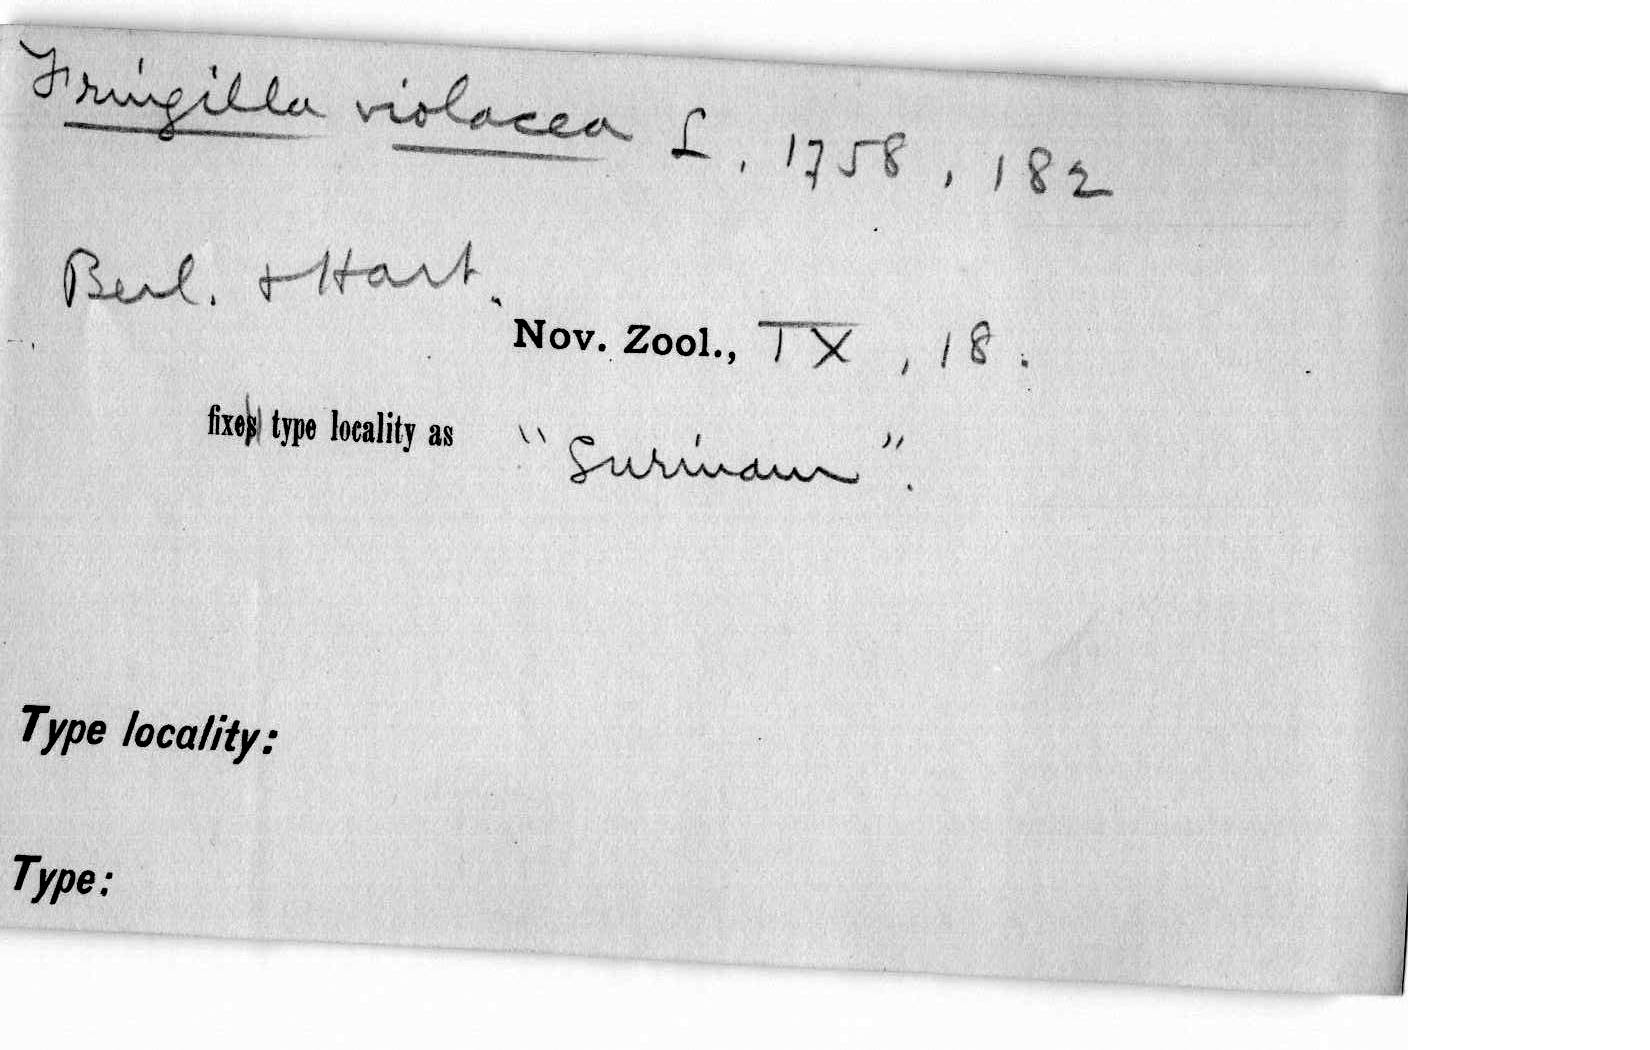 Fringilla violacea L, 1758, 182
Berl. + Hart.
Nov. Zool., IX, 18.
fixe type locality as "Surinam".
Type locality:
Type: